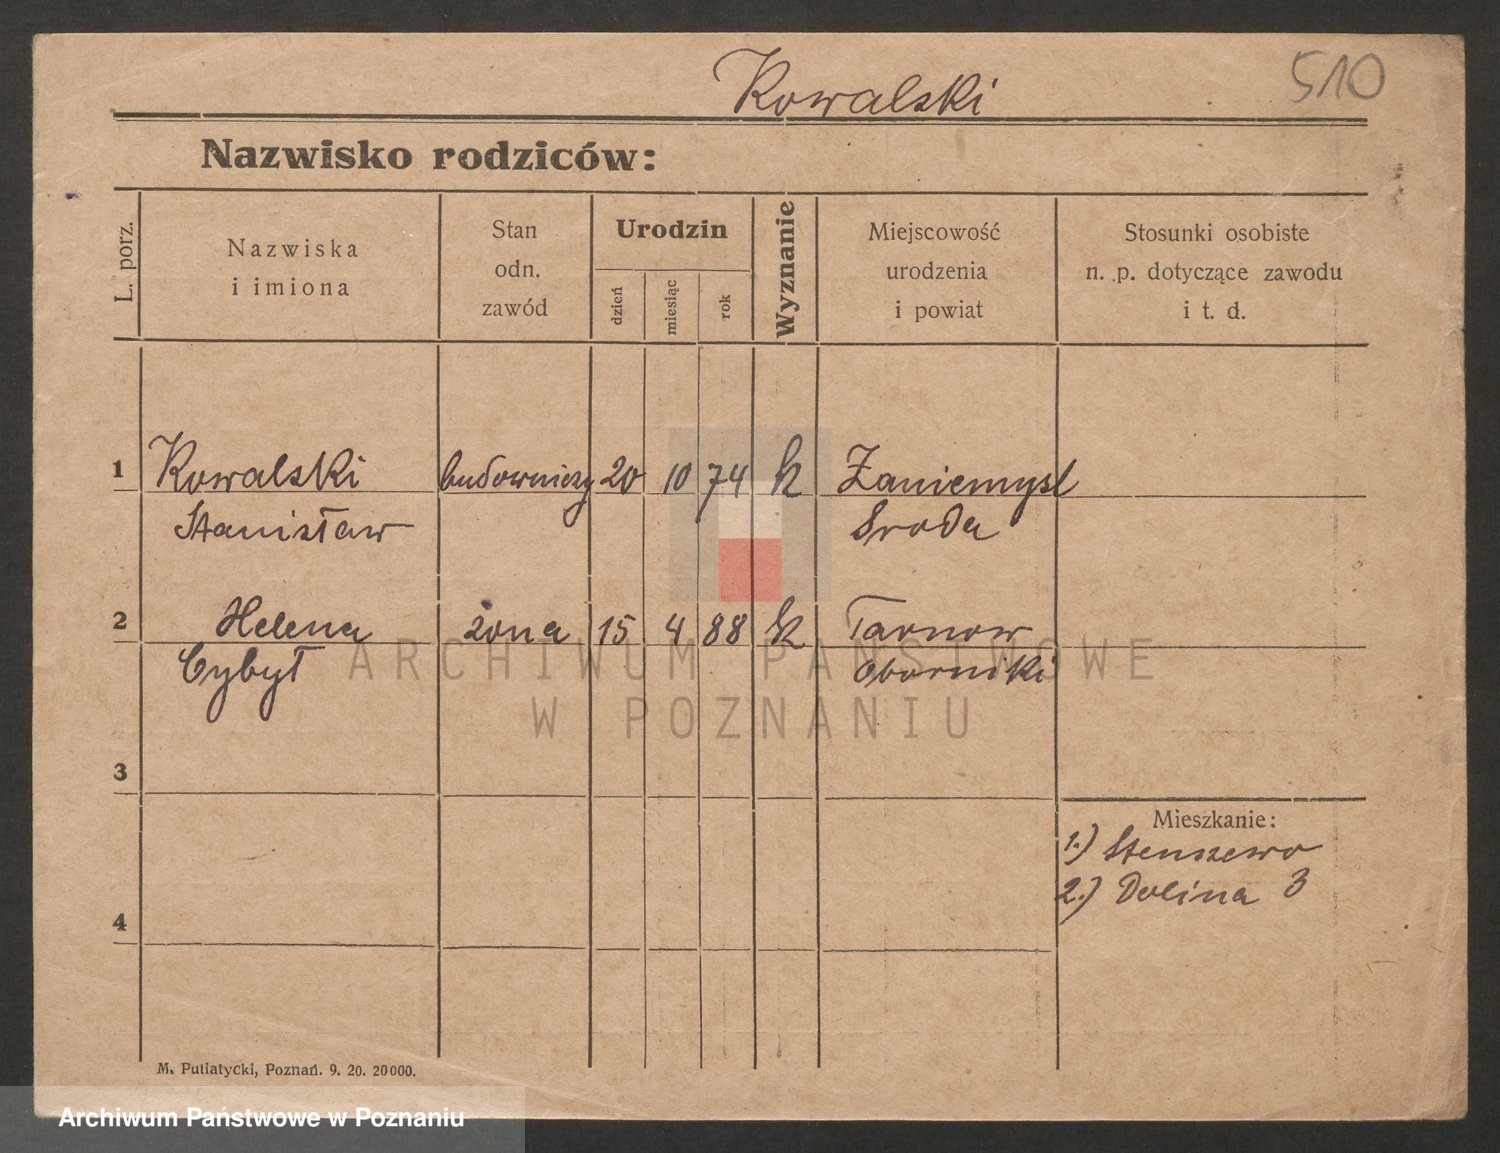 Kowalski
510
Nazwisko rodziców:
L. porz.
Nazwiska
i imiona
Stan
odn.
zawód
Urodzin
dzień
miesiąc
rok
Wyznanie
Miejscowość
urodzenia
i powiat
Stosunki osobiste
n. p. dotyczące zawodu
i t. d.
1 Kowalski budowniczy 20 10 74 k Zaniemysl
Stanisław Sroda
2 Helena żona 15 4 88 k Tarnow
Cybył Oborniki
3
Mieszkanie:
1.) Stenszewo
2.) Dolina 3
4
M. Putiatycki, Poznań. 9. 20. 20000.
ARCHIWUM PAŃSTWOWE
W POZNANIU
Archiwum Państwowe w Poznaniu